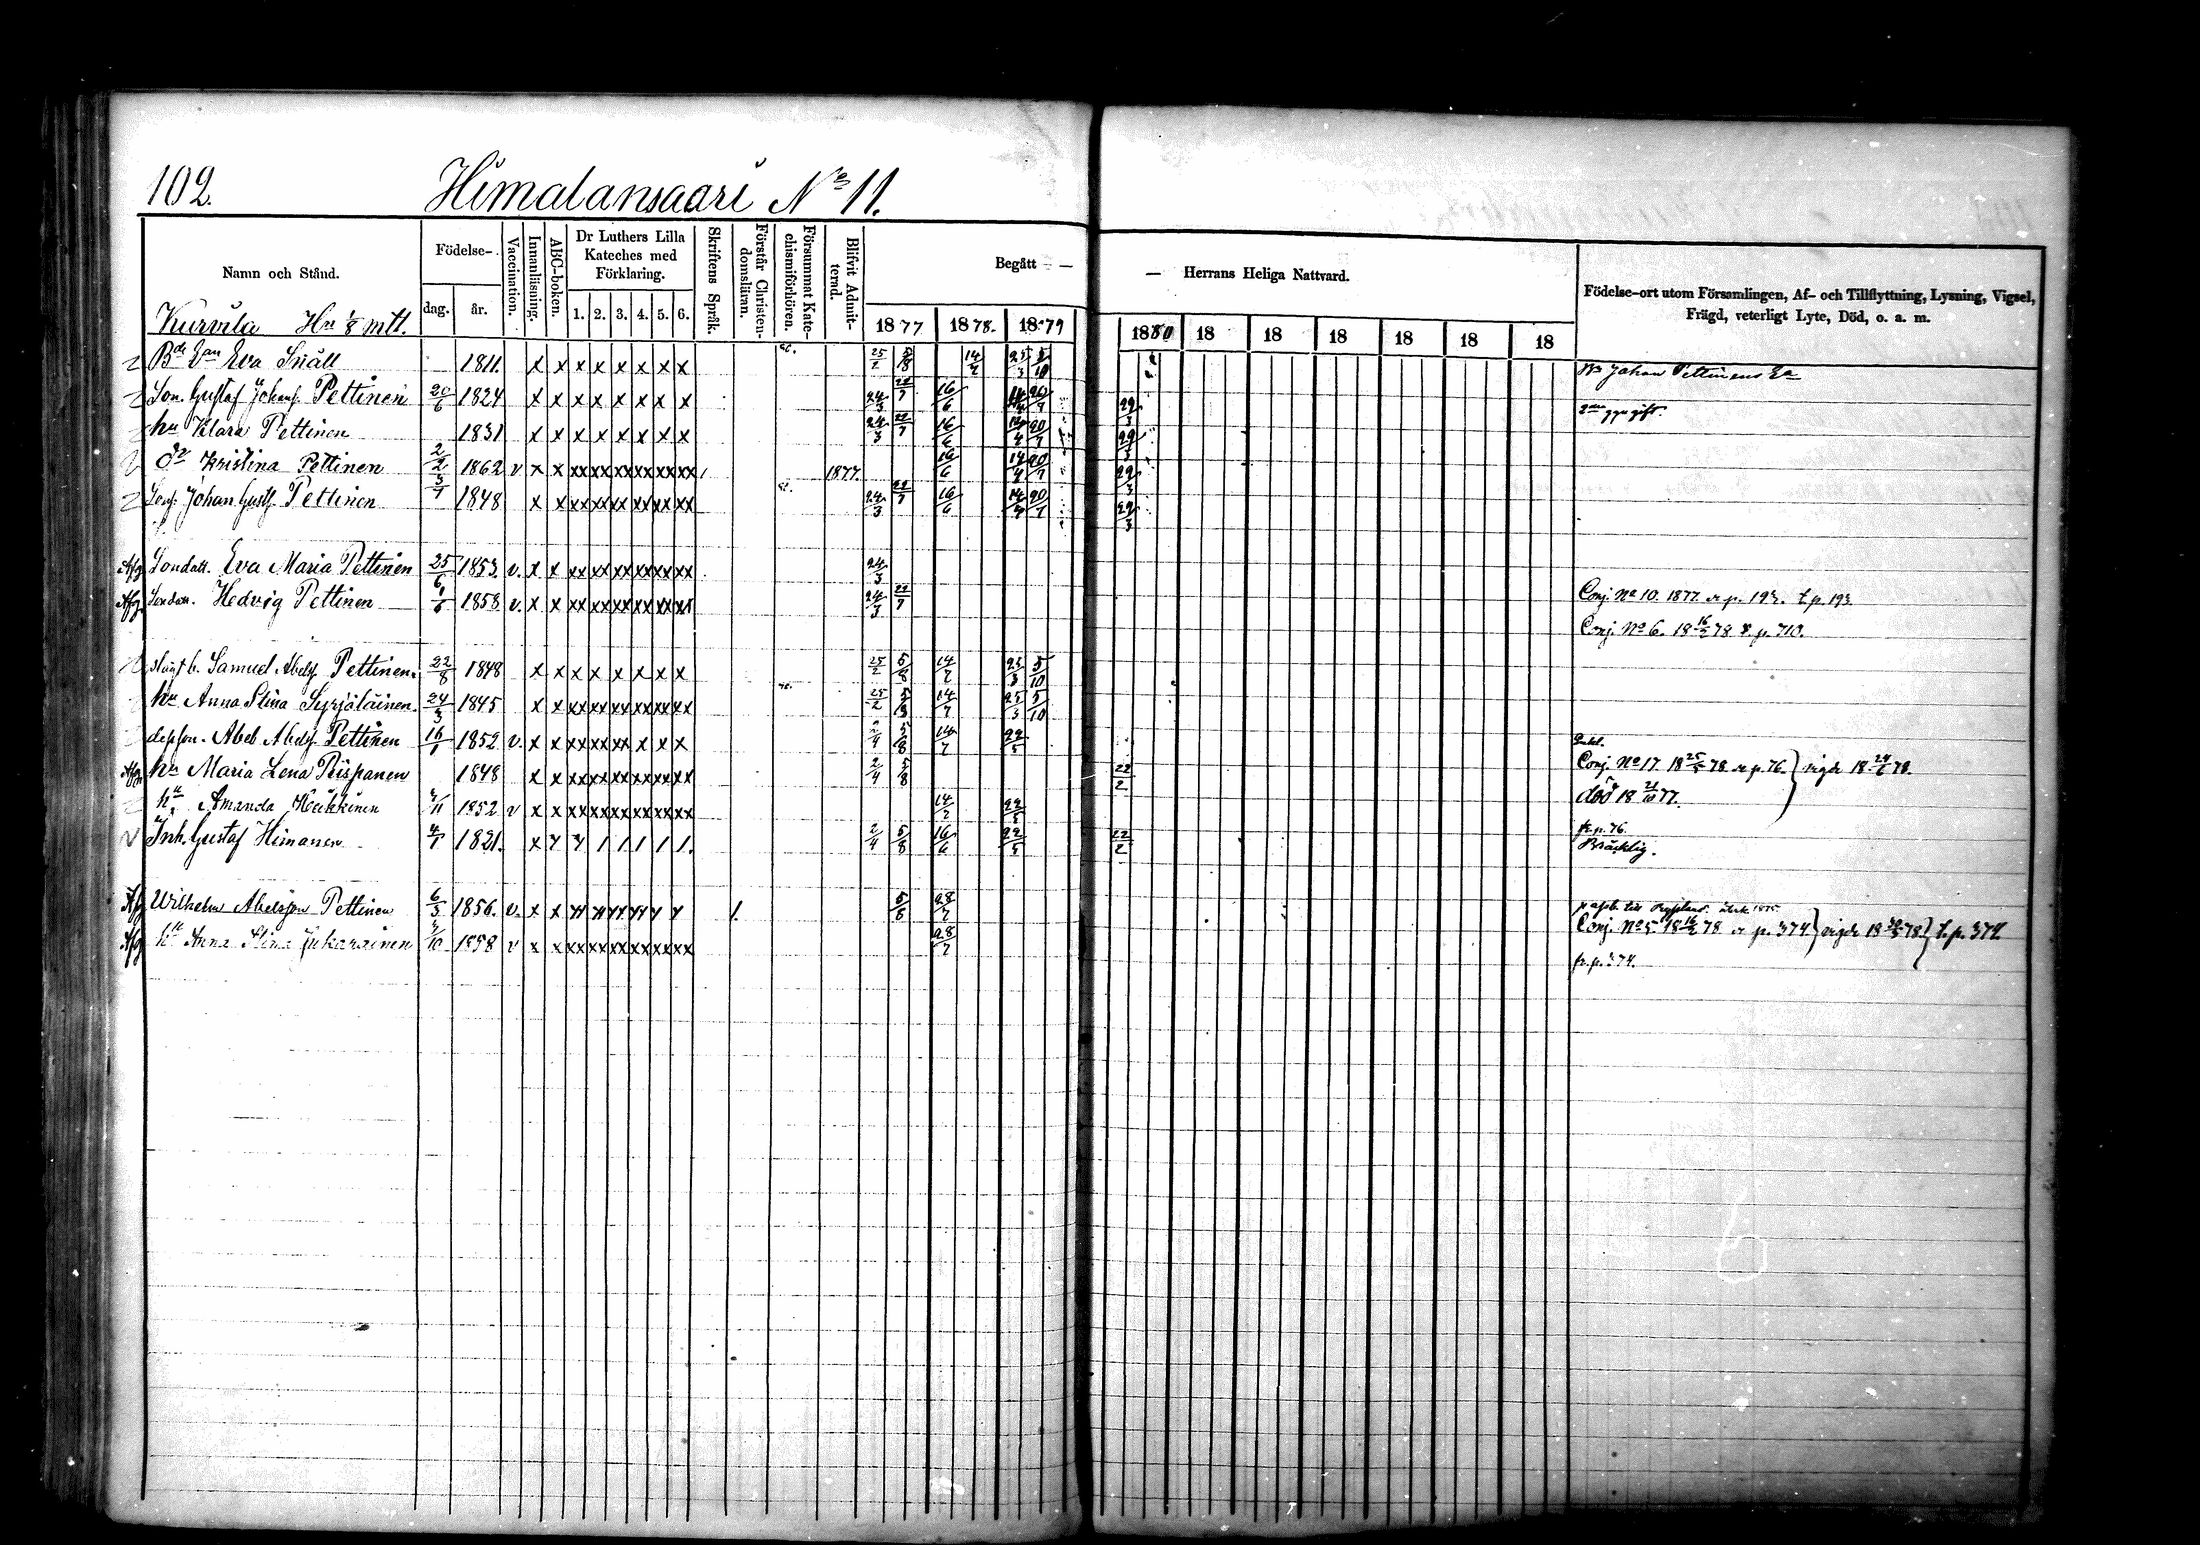 102. Himalansaari No 11.
Namn och Stånd.
Födelse-
dag.
år.
Vaccination.
Innanläsning.
ABC-boken.
Dr Luthers Lilla
Kateches med
Förklaring.
1. 2. 3. 4. 5. 6.
Skriftens Språk.
Förstår Christen-
domsläran.
Försummat Kate-
chismiförhören.
Blifvit Admit-
terad.
Begått — —
1877 1878. 1879
— Herrans Heliga Nattvard.
1880 18 18 18 18 18 18
Födelse-ort utom Församlingen, Af- och Tillflyttning, Lysning, Vigsel,
Frägd, veterligt Lyte, Död, o. a. m.
Kurvila Hn 1/8 mtl.
Eva Snäll 1811. x x x x x x x x 25/2 14/7 Johan Pettinens
Son. Gustaf Johans. Pettinen 20/6 1824 x x x x x x x x 24/3 22/7 16/6 29/3 gift.
hu Klara Pettinen 1831 x x x x x x x x 24/3 22/7 16/6 29/3
dr Kristina Pettinen 2/2 1862 v x x xx xx xx xx xx xx 1877. 16/6 14/4 20/7 29/3
Sons. Johan Gust. Pettinen 3/7 1848 x x xx xx xx xx xx xx 24/3 22/7 16/6 14/4 20/7 29/3
Afg. Sondott. Eva Maria Pettinen 25/6 1853. v. x x xx xx xx xx xx xx 24/3
Afg. Sondott. Hedvig Pettinen 1858 v. x x xx xx xx xx xx xx 24/3 22/7 Conj. No 10. 1877 t. p. 193.
Conj. No 6. 18 16/2 78 p. 710.
Samuel Abels. Pettinen. 22/8 1848 x x x x x x x x 25/2 5/8 14/7 25/3 5/10
hu Anna Stina Syrjäläinen. 24/3 1845 x x xx xx xx xx xx xx 25/2 14/7 25/3 5/10
Abel Abels. Pettinen 1852 v. x x xx xx xx x x x 2/4 5/8 14/7 22/5
Afg. hu Maria Lena Piispanen 1848 x x xx xx xx xx xx xx 2/4 5/8 22/2 Conj. No 17 18 25/5 78 p. 76. vigde 18 24/6 78.
hu Amanda Heikkinen 1852 v x xx xx xx xx xx xx 14/7 död 18 77.
Inh. Gustaf Himanen 4/7 1821. 2/4 5/8 16/6 22/5 22/2 fr. p. 76.
Bräcklig.
Afg. Wilhelm Abelsson Pettinen 6/3 1856. v. x x 28/7
Conj. No 5 18 78 p. 374 vigde 18 78. t. p. 374
Afg. hu Anna Stina 1858 v x 28/7
fr. p. 374.